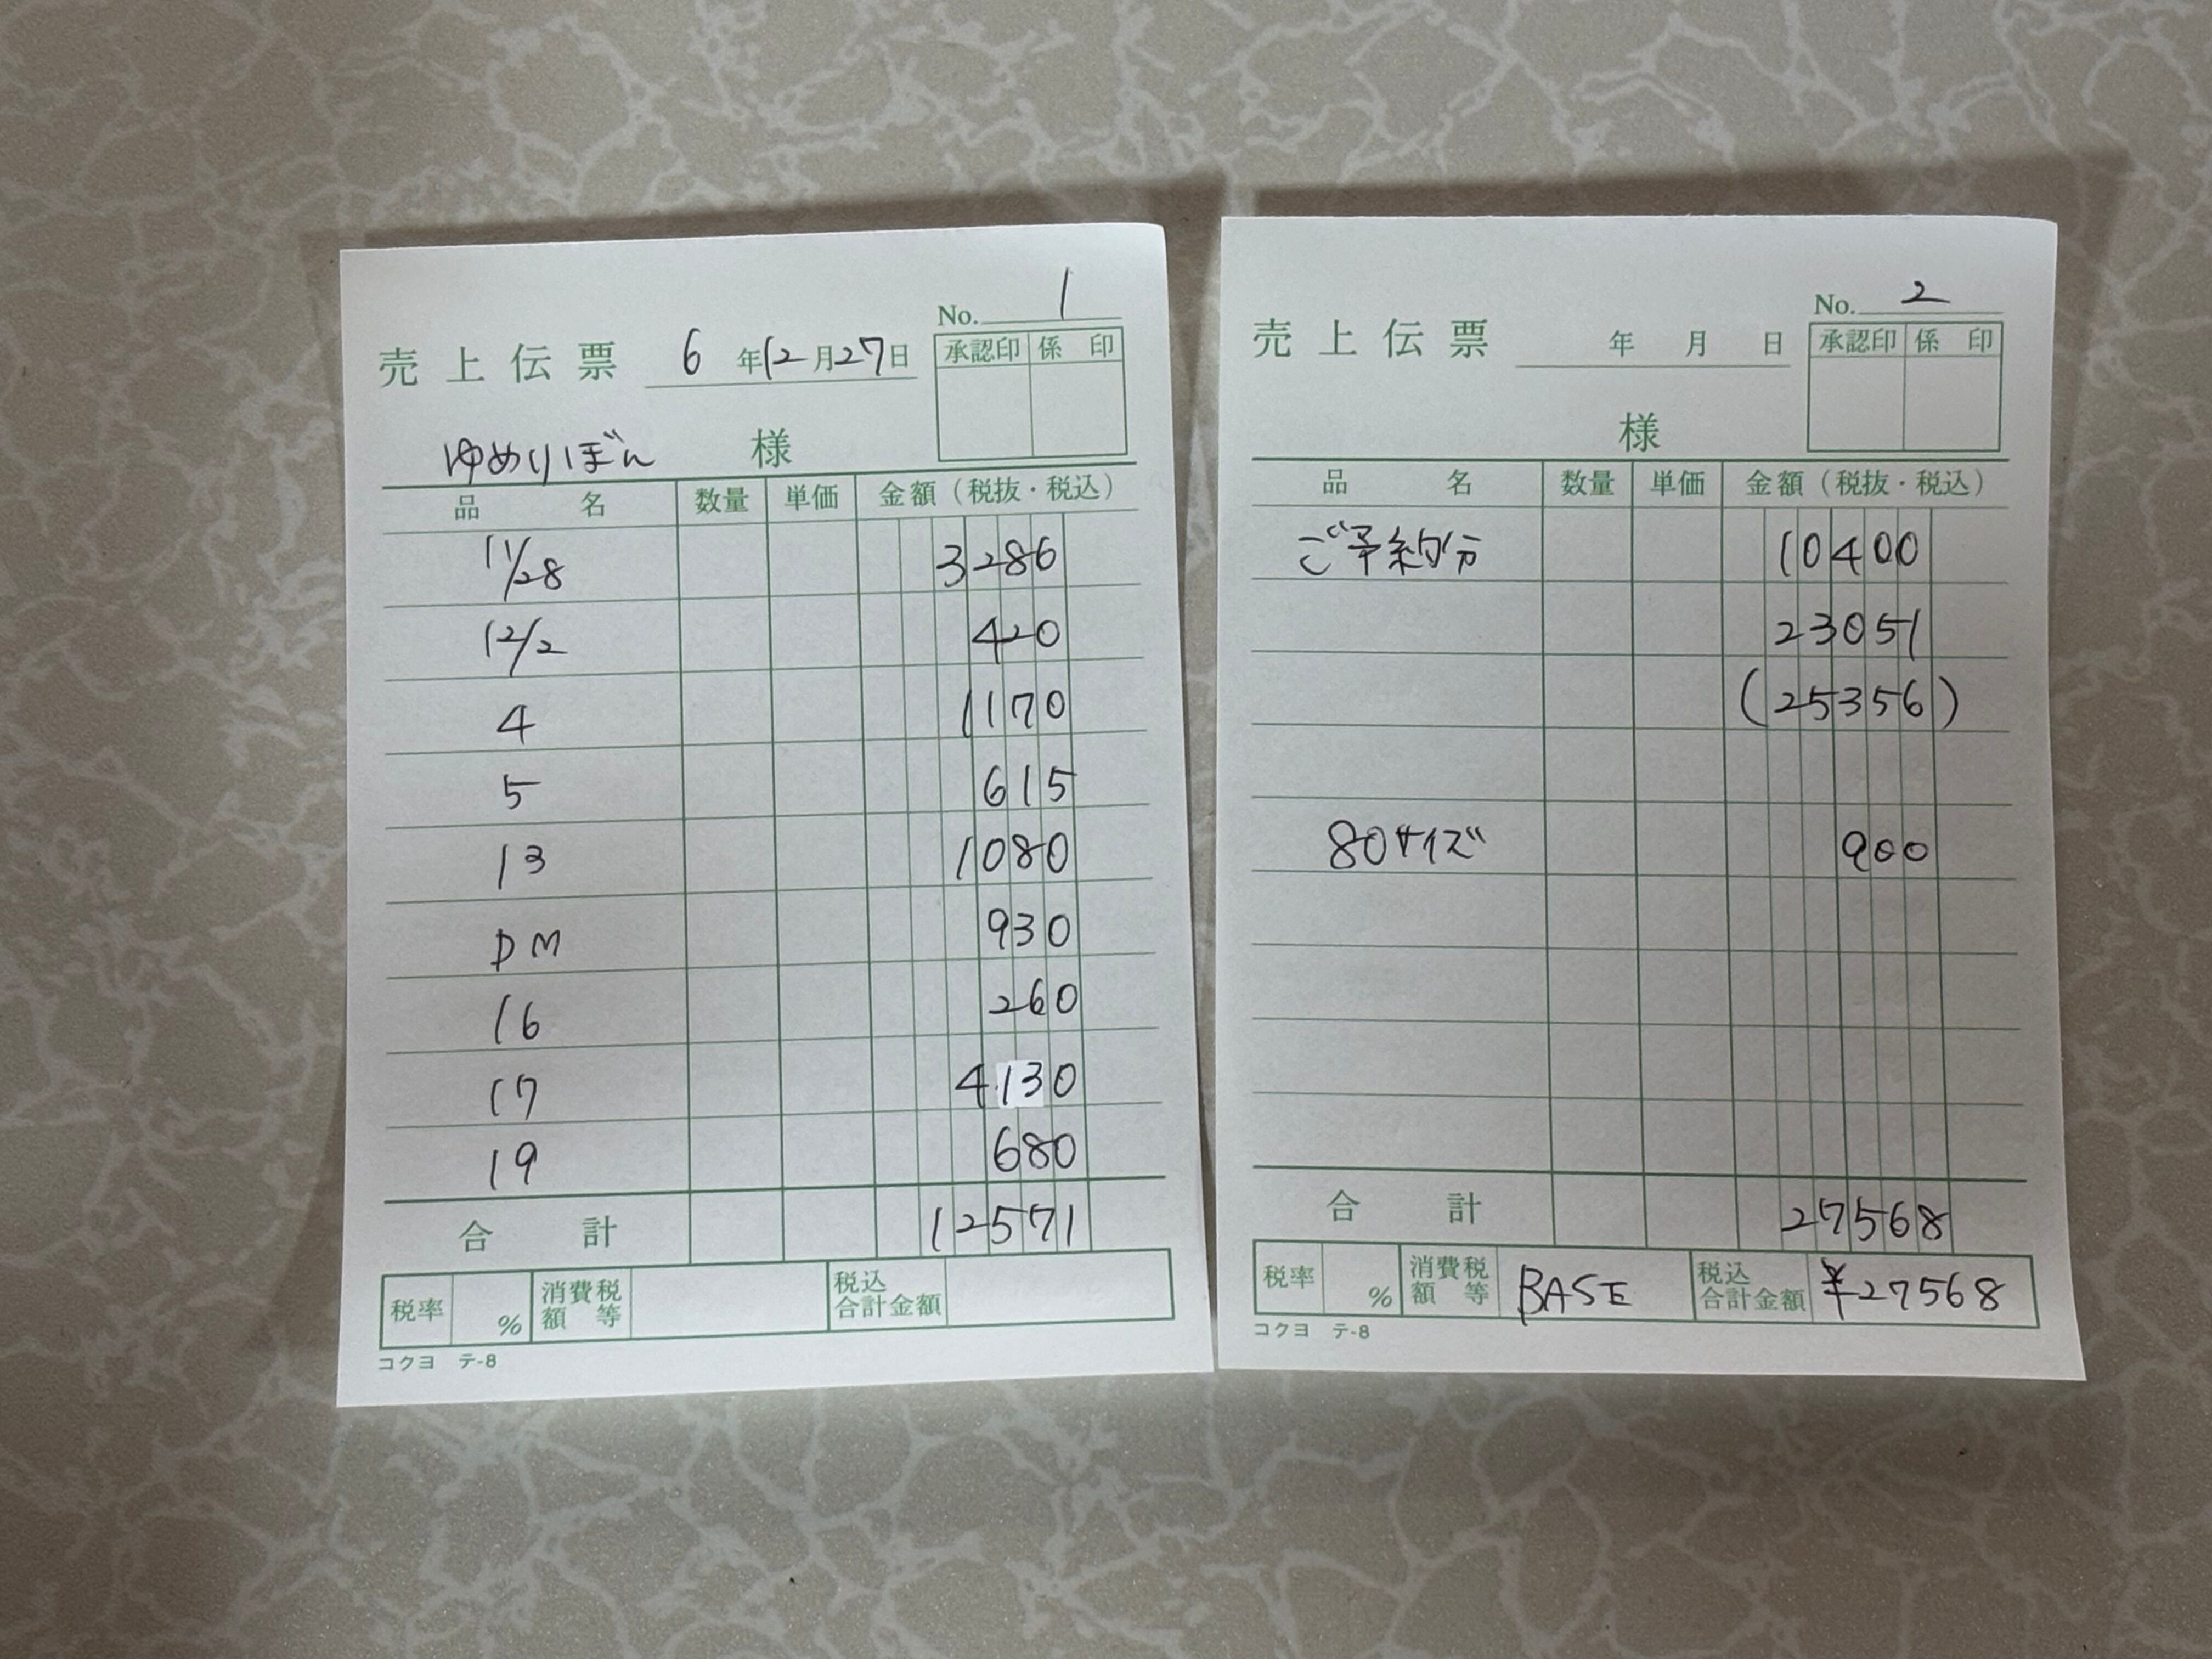 No. 1
売上伝票 6年12月27日
承認印 係印
ゆめりぼん 様
品名 数量 単価 金額(税抜・税込)
11/28 3286
12/2 420
4 1170
5 615
13 1080
DM 930
16 260
17 4130
19 680
合計 12571
税率 % 消費税額等 税込合計金額
コクヨ テ-8
No. 2
売上伝票 年 月 日
承認印 係印
様
品名 数量 単価 金額(税抜・税込)
ご予約分 10400
23051
(25356)
80サイズ 900
合計 27568
税率 % 消費税額等 BASE 税込合計金額 ¥27568
コクヨ テ-8